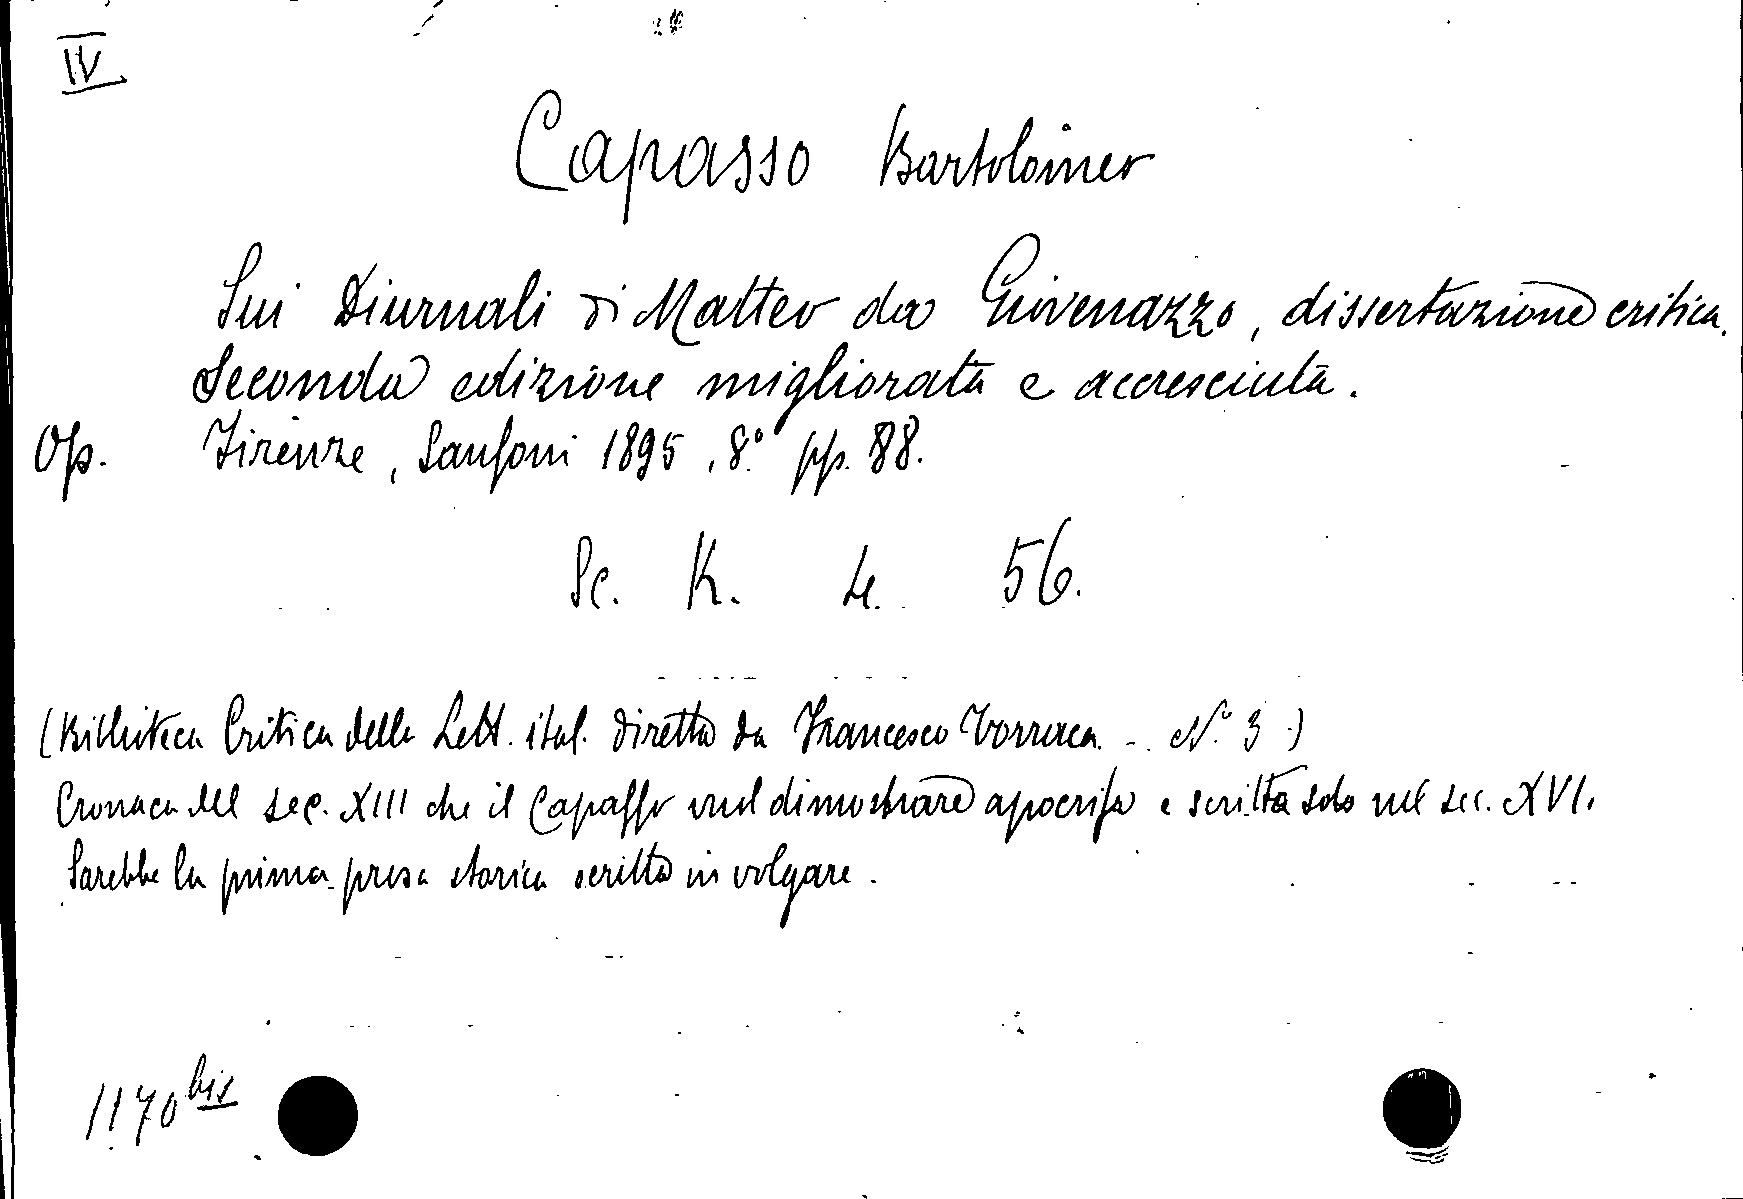 IV
Capasso Bartolomeo
Sui Diurnali di Matteo da Giovenazzo, dissertazione critica.
Seconda edizione migliorata e accresciuta.
Op. Firenze, Sansoni 1895, 8.° pp. 88.
Sc. K. 4. 56.
(Biblioteca Critica della Lett. ital. diretta da Francesco Torraca - N.° 3)
Cronaca del sec. XIII che il Capasso vuol dimostrare apocrifa e scritta solo nel sec. XVI.
Sarebbe la prima prosa storica scritta in volgare.
1170 bis